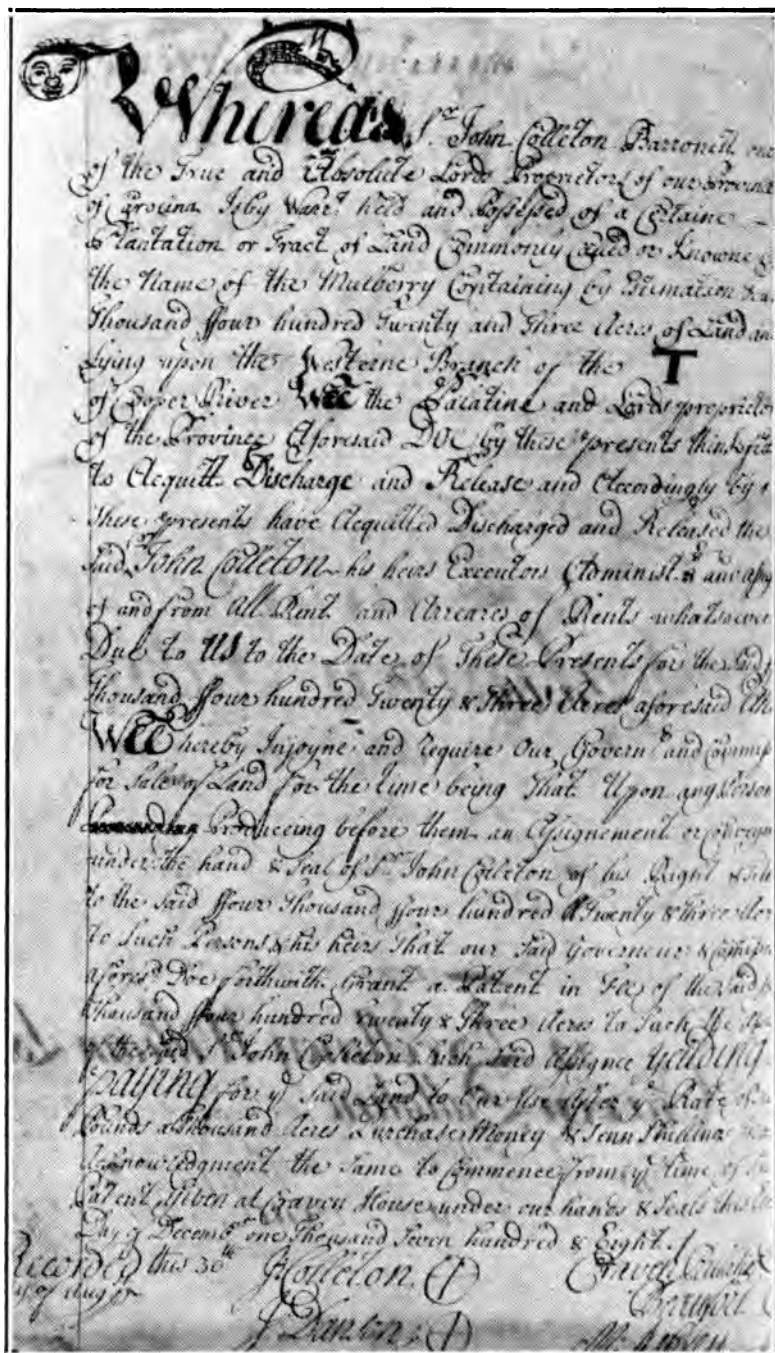 Whereas Sr. John Colleton Barronett one
of the True and Absolute Lords Proprietors of our Province
of Carolina Is by Warrt. held and Possessed of a Certaine
Plantation or Tract of Land Commonly Called or Knowne
the Name of the Mulberry Containing by Estimation
Thousand ffour hundred Twenty and Three Acres of Land and
Lying upon the Westerne Branch of the T
of Cooper River Wee the Palatine and Lords proprietors
of the Province Aforesaid Doe by these presents think
to Acquitt Discharge and Release and Accordingly by
These presents have Acquitted Discharged and Released the
Said Sr. John Colleton his heirs Executors Administrs and
of and from All Rent and Arreares of Rents whatsoever
Due to US to the Date of These Presents for the Said
Thousand ffour hundred Twenty & Three Acres aforesaid
Wee hereby Injoyne and require Our Governr and
for Sale of Land for the time being That Upon any Person
Produceing before them an Assignement or
under the hand & Seal of Sr. John Colleton of his Right &
to the Said ffour Thousand ffour hundred Twenty & three
to Such Persons & his heirs That our Said Governeur &
aforesd. Doe forthwith Grant a Patent in Fee of the Said
Thousand ffour hundred Twenty & Three Acres to Such the
of the Said Sr. John Colleton Such Said Assignee Yeilding
paying for ye Said Land to Our Use After ye Rate of
Pounds a Thousand Acres Purchase Money & Tenn Shillings
Acknowledgment the Same to Commence from ye time of
Patent Given at Craven House under our hands & Seals this
Day of Decembr. one Thousand Seven hundred & Eight.
Recorded this 30th J Colleton Craven
of Augt. Beaufort
J Danson